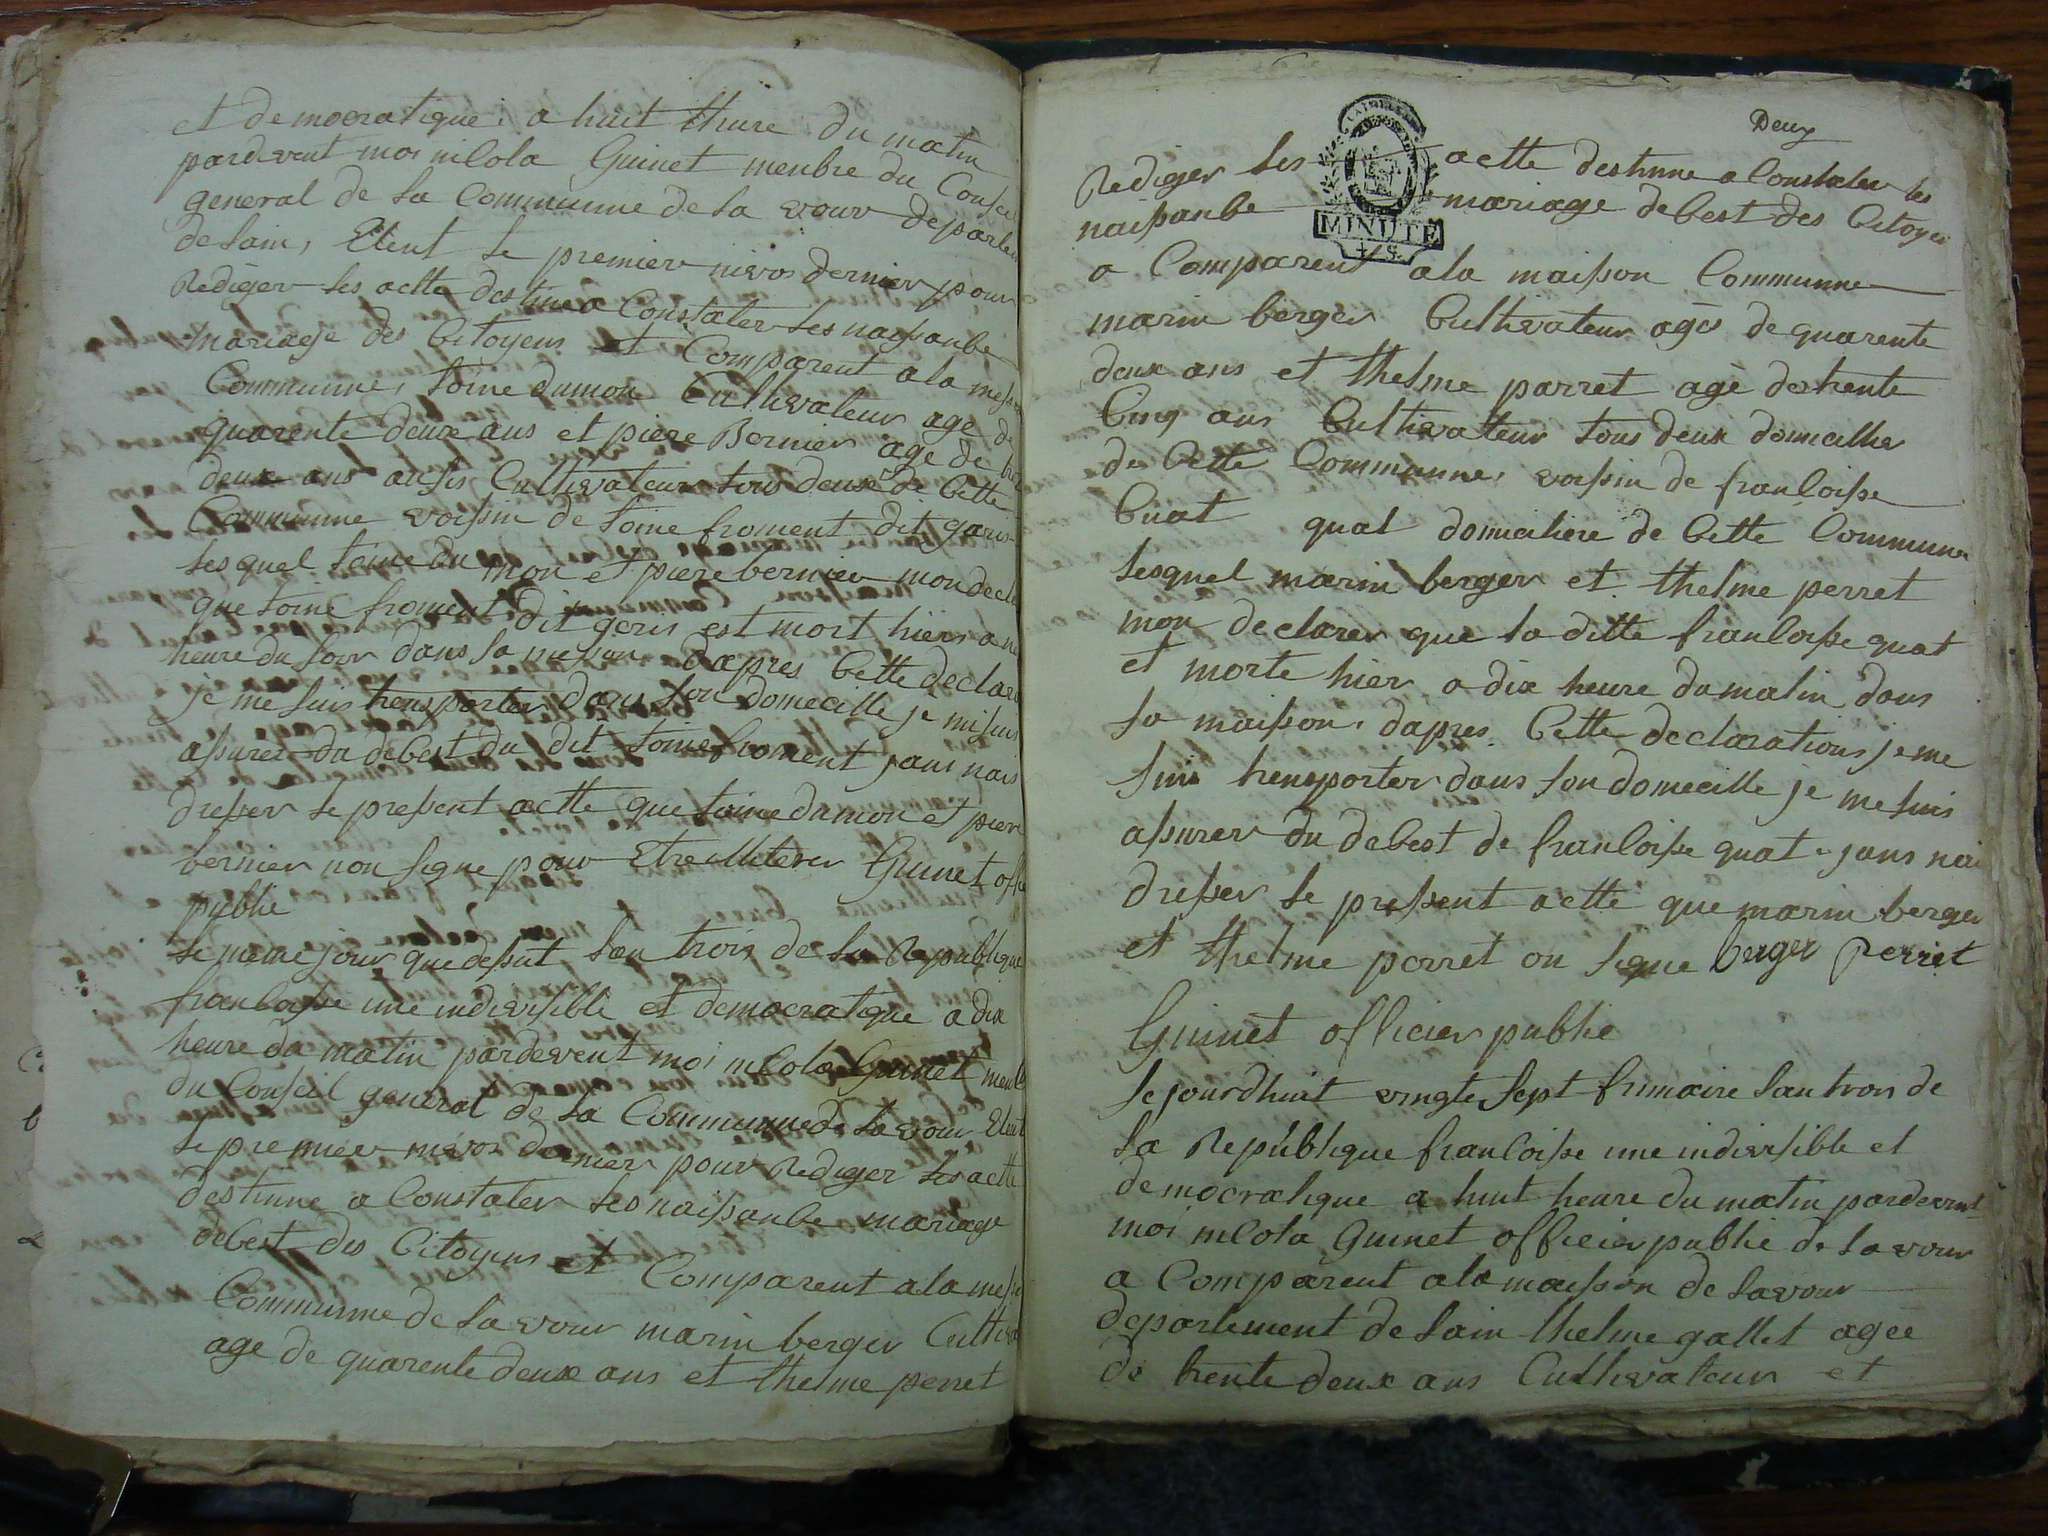 et democratique a huit theure du matin
pardevent moi nicola Guinet menbre du Consei
general de la Communne de la vour departem
de lain, Elent le premier nivos dernier pour
Rediger les actte destinne a Constater les naisanbe
mariage des Citoyens et Comparent a la meso
Communne, toine dumon Cultivateur age de
quarente deux ans et piere Bernier age de tre
deux ans ausis Cultivateur tous deux de Cette
Communne voisin de toine froment dit garis
lesquel toine dumon et piere bernier mon decla
que toine froment dit geris est mort hiers a ne
heure du soir dans sa meson dapres Cette declara
je me suis trensporter dans son domecille je mi suis
asurer du debest du dit toine froment jans nais
dresser le present actte que toine dumon et piere
bernier non signe pour Etre illiterer Guinet offi
publie
le meme jour que desut lan trois de la Republique
francoise une indivisible et democratique a dix
heure du matin pardevent moi nicola Guinet menb
du Conseil general de la Communne de la vour Elent
le premier nivos dernier pour Rediger les actte
destinne a Constater les naisanbe mariage
debest des Citoyens et Comparent a la meso
Communne de la vour marin berger Cultiva
age de quarente deux ans et thelme perret
Deux
Rediger les actte destinne a Constater les
naisanbe mariage debest des Citoyen
MINUTE
a Comparent a la maison Communne
marin berger Cultivateur ages de quarente
deux ans et thelme parret age de trente
Cinq ans Cultivateur tous deux domicilier
de Cette Communne, voisin de francoise
Cuat quat domiciliere de Cette Communne
lesquel marin berger et thelme perret
mon declarer que la ditte francoise quat
et morte hier a dix heure du matin dans
sa maison, dapres Cette declarations je me
suis trensporter dans son domecille je me suis
asurer du debest de francoise quat jans nai
dresser le present actte que marin berger
et thelme perret on signe berger Perret
Guinet officier publie
le jourdhuit vingte sept frimaire lan trois de
la Republique francoise une indivisible et
democratique a huit heure du matin pardevent
moi nicola Guinet officier publie de la vour
a Comparent a la maison de lavour
departement de lain thelme gallet agee
de trente deux ans Cultivateur et